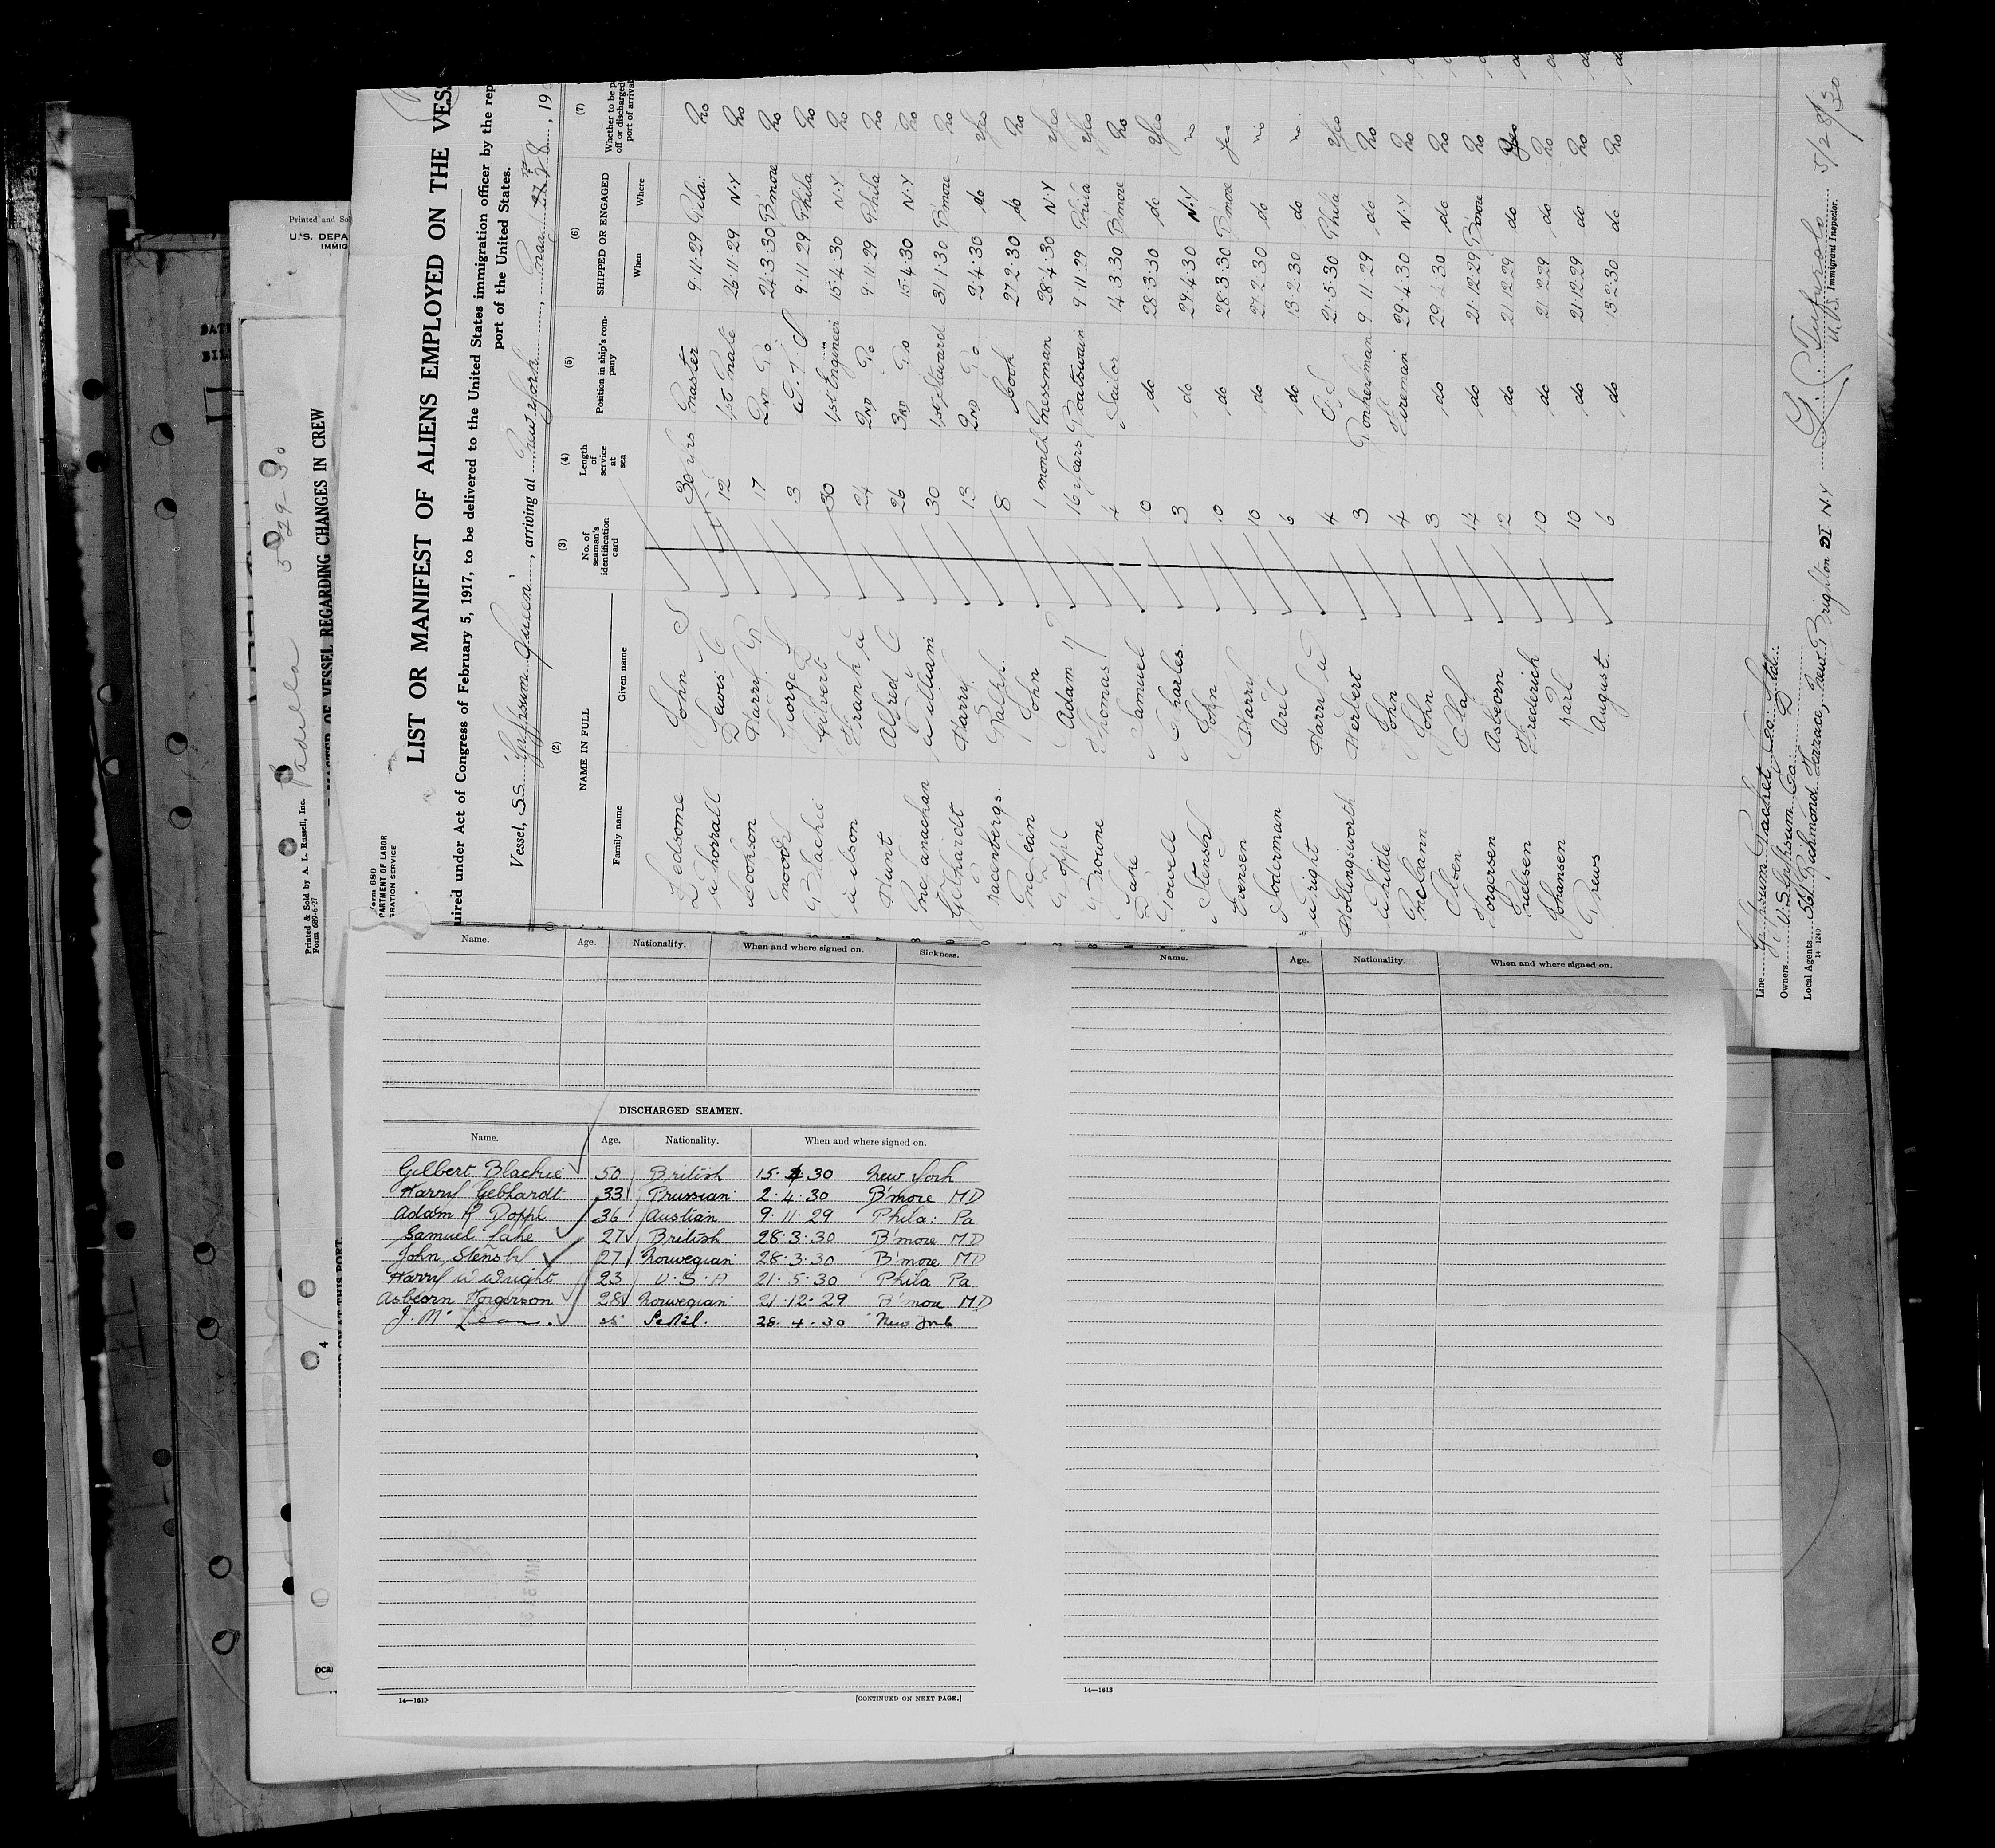 Printed and
U.S. DEPA
IMMIG
Padilla 5-29-30
Printed & Sold by A. L. Russell, Inc.
Form 689-6-27
OF VESSEL REGARDING CHANGES IN CREW
Form 680
PARTMENT OF LABOR
GRATION SERVICE
LIST OR MANIFEST OF ALIENS EMPLOYED ON THE VES
uired under Act of Congress of February 5, 1917, to be delivered to the United States immigration officer by the rep
port of the United States.
Vessel, SS. Gypsum Queen, arriving at New York, 19
(2) (3) (4) (5) (6) (7)
NAME IN FULL No. of seaman's identification card Length of service at sea Position in ship's company SHIPPED OR ENGAGED Whether to be p off or discharged port of arrival
Family name Given name When Where
Ledsome John S 30 yrs Master 9.11.29 Phila: No
Whorrall Lewis C 12 1st Mate 26.11.29 N.Y No
Cookson Harry 17 2nd Do 24.3.30 B'more No
Woods George 3 W.T.O 9.11.29 Phila No
Blackie Gilbert 30 1st Engineer 15.4.30 N.Y No
Wilson Frank W 24 2nd Do 9.11.29 Phila No
Hunt Alfred C 26 3rd Do 15.4.30 N.Y No
McManachan William 30 1st Steward 31.1.30 B'more No
Gebhardt Harry 13 2nd Do 2.4.30 do Yes
Ralph 8 Cook 27.2.30 do No
McLean John 1 month Messman 28.4.30 N.Y Yes
Doppl Adam 16 years Boatswain 9.11.29 Phila Yes
Browne Thomas 4 Sailor 14.3.30 B'more No
Lake Samuel 10 do 28.3.30 do Yes
Powell Charles 3 do 29.4.30 N.Y no
Stensby John 10 do 28.3.30 B'more Yes
Svensen Harry 10 do 27.2.30 do no
Soderman Axel 6 do 13.2.30 do no
Wright Harry W 4 O S 21.5.30 Phila Yes
Hollingsworth Herbert 3 Donkeyman 9.11.29 do No
Whittle John 4 Fireman 29.4.30 N.Y No
McCann John 3 do 29.4.30 do No
Olsen Olaf 14 do 21.12.29 B'more No
Torgersen Asbeorn 12 do 21.12.29 do Yes
Frederich 10 do 21.12.29 do No
Johansen Karl 10 do 21.12.29 do No
August 6 do 13.2.30 do No
Line Gypsum Packet Co. Ltd.
Owners U.S. Gypsum Co.
Local Agents 561 Richmond Terrace, New Brighton SI NY
14-1240
U.S. Immigrant Inspector.
5/28/30
Name. Age. Nationality. When and where signed on. Sickness.
DISCHARGED SEAMEN.
Name. Age. Nationality. When and where signed on.
Gilbert Blackie 50 British 15.4.30 New York
Harry Gebhardt 33 Prussian 2.4.30 B'more MD
Adam R Doppl 36 Austian 9.11.29 Phila: Pa
Samuel Lake 27 British 28.3.30 B'more MD
John Stensby 27 Norwegian 28.3.30 B'more MD
Harry W Wright 23 U.S.A 21.5.30 Phila Pa
Asbeorn Torgerson 28 Norwegian 21.12.29 B'more MD
J. Mc Lean. 28.4.30 New York
14—1613
[CONTINUED ON NEXT PAGE.]
Name. Age. Nationality. When and where signed on.
14—1613